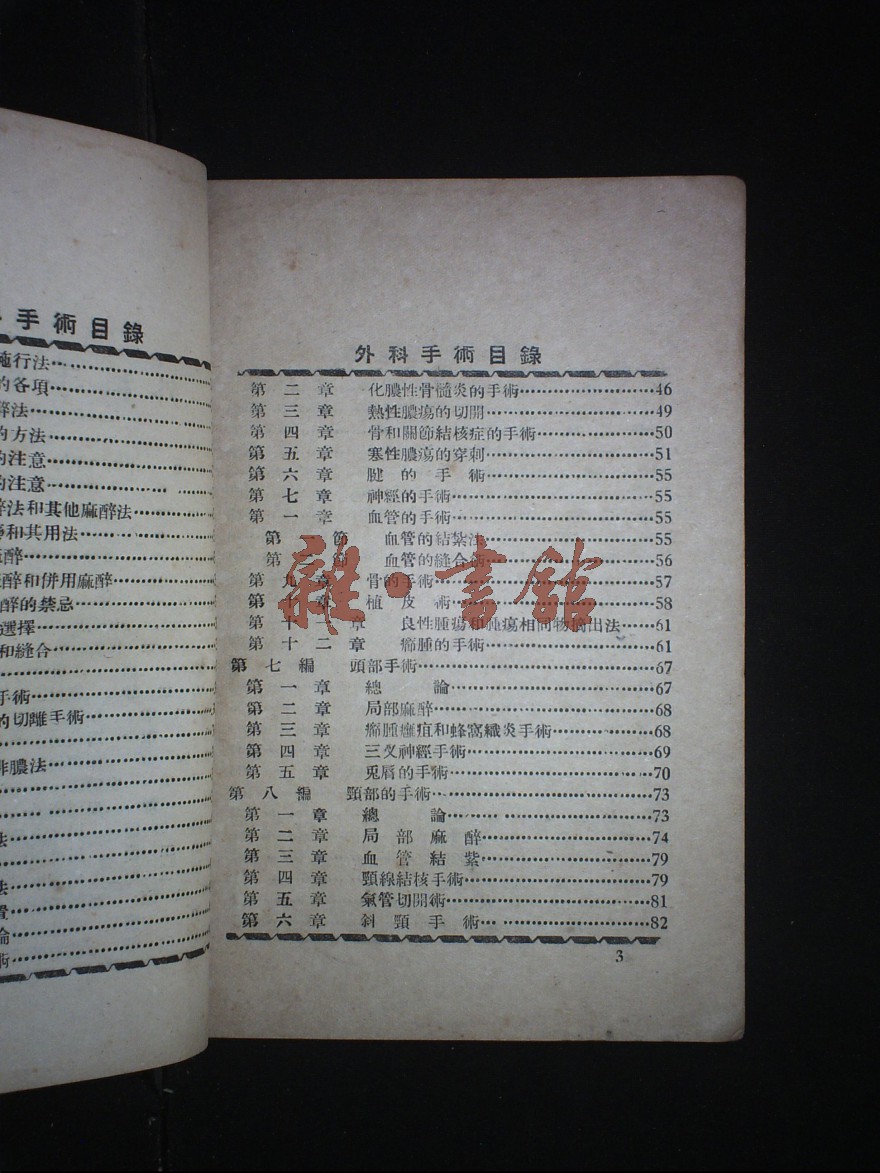 手術目錄
施行法
的各項
醉法
的方法
的注意
的注意
醉法和其他麻醉法
和其用法
麻醉
醉和併用麻醉
醉的禁忌
選擇
和縫合
手術
的切離手術
排膿法
法
法
論
術
外科手術目錄
第二章 化膿性骨髓炎的手術 46
第三章 熱性膿瘍的切開 49
第四章 骨和關節結核症的手術 50
第五章 寒性膿瘍的穿刺 51
第六章 腱的手術 55
第七章 神經的手術 55
第一章 血管的手術 55
第 節 血管的結紮法 55
第二節 血管的縫合術 56
第九章 骨的手術 57
第十章 植皮術 58
第十一章 良性腫瘍和腫瘍相同物摘出法 61
第十二章 癤腫的手術 61
第七編 頭部手術 67
第一章 總論 67
第二章 局部麻醉 68
第三章 癤腫癰疽和蜂窩織炎手術 68
第四章 三叉神經手術 69
第五章 兎唇的手術 70
第八編 頸部的手術 73
第一章 總論 73
第二章 局部麻醉 74
第三章 血管結紮 79
第四章 頸線結核手術 79
第五章 氣管切開術 81
第六章 斜頸手術 82
3
雜·書館